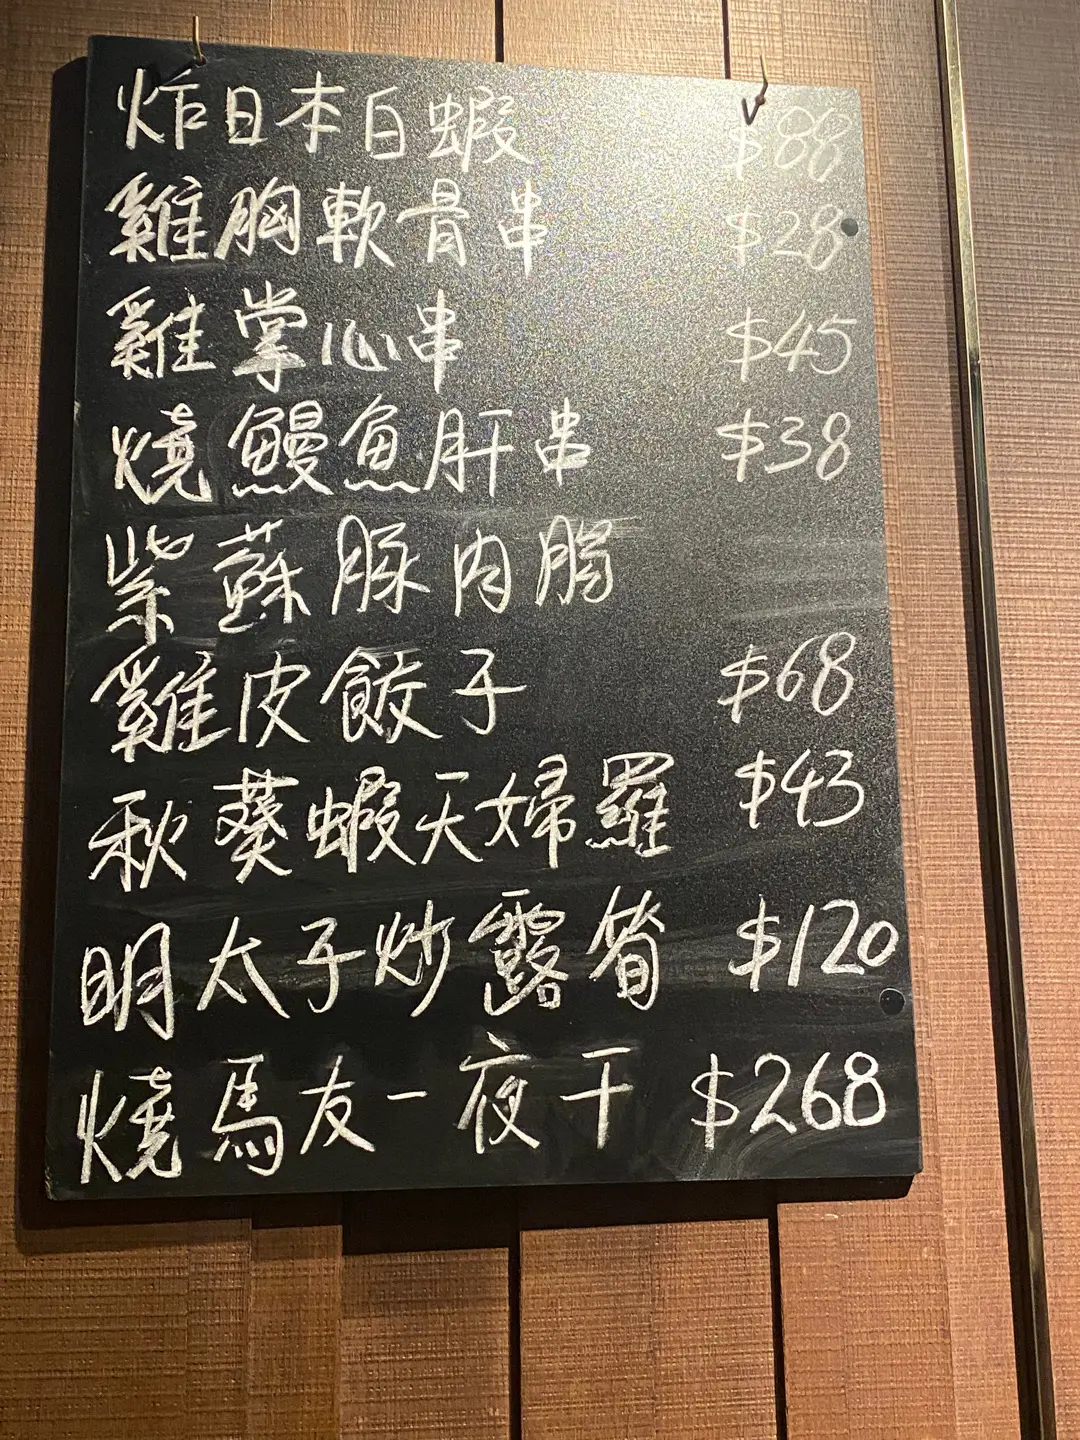 炸日本白蝦 $88
雞胸軟骨串 $28
雞掌心串 $45
燒鰻魚肝串 $38
紫蘇豚肉腸
雞皮餃子 $68
秋葵蝦天婦羅 $43
明太子炒露筍 $120
燒馬友一夜干 $268